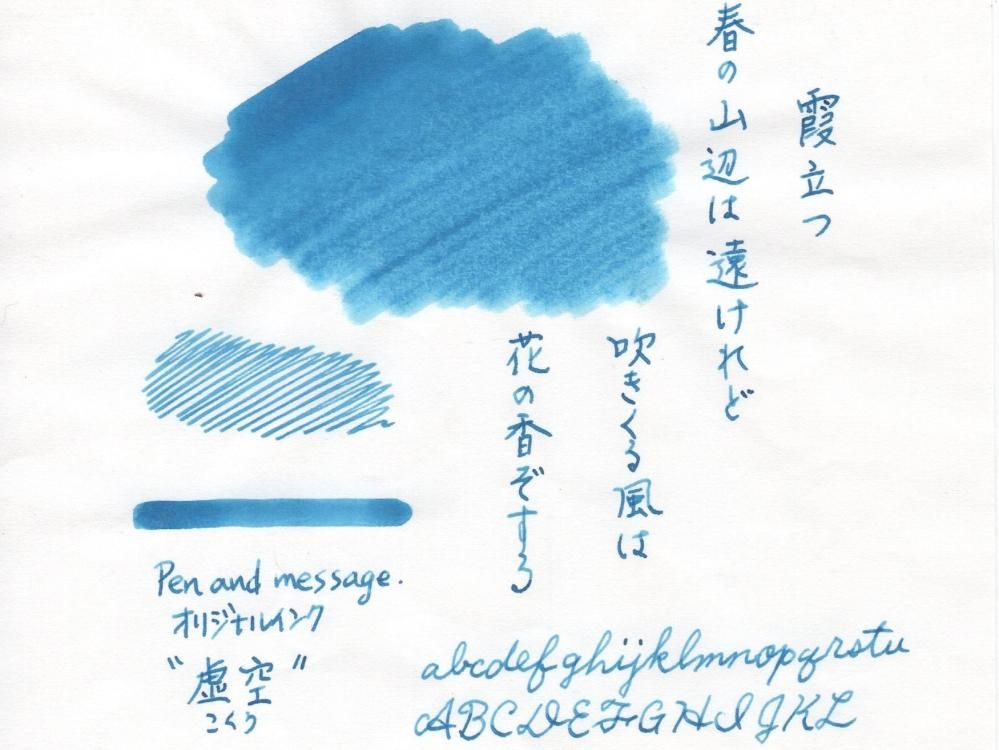 霞立つ
春の山辺は遠けれど
吹きくる風は
花の香ぞする
Pen and message.
オリジナルインク
"虚空"
こくう
abcdefghijklmnopqrstu
ABCDEFGHIJKL